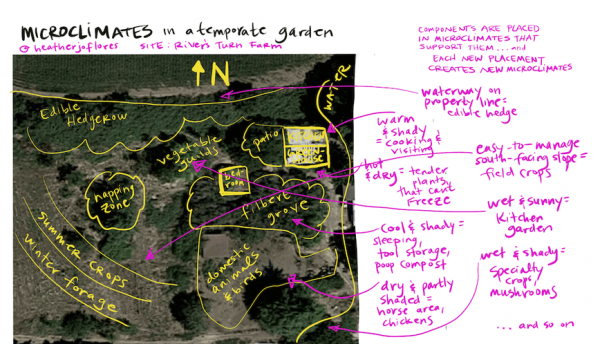 MICROCLIMATES in a temporate garden
@heatherjoflores SITE: River's Turn Farm
COMPONENTS ARE PLACED
IN MICROCLIMATES THAT
SUPPORT THEM... and
EACH NEW PLACEMENT
CREATES NEW MICROCLIMATES
N
WATER
Edible
Hedgerow
vegetable
guilds
patio
bed-
room
napping
zone
filbert
grove
summer crops
winter-forage
domestic
animals
& birds
waterway on
property line=
edible hedge
warm
& shady
= cooking &
visiting
easy-to-manage
south-facing slope=
field crops
hot
& dry= tender
plants,
that can't
Freeze
wet & sunny=
Kitchen
garden
Cool & shady=
sleeping,
tool storage,
poop compost
wet & shady=
Specialty
crops,
mushrooms
dry & partly
shaded =
horse area,
chickens
... and so on